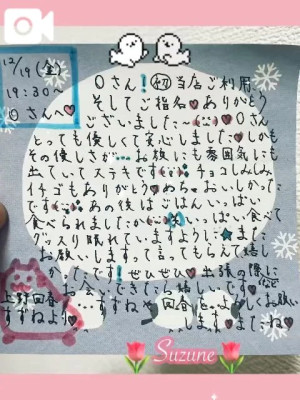 12/19(金)
19:30~
Oさんへ♥
Oさん!㊙初当店ご利用、
そしてご指名♥ありがとう
ございました♥Oさん
とっても優しくて安心しました♥しかも
その優しさが…お顔にも雰囲気にも
出ていてステキです チョコしみしみ
イチゴもありがとう♥めちゃおいしかった
です あの後はごはんいっぱい
食べられましたか いっぱい食べて
グッスリ眠れていますように★また
お願いしますって言ってもらえて嬉し
かったです!ぜひぜひ♥出張の際に
お会いできたら嬉しいです
上野回春
すずねより♥
すずねや回春をよろしくお願い
しますまたね♥
Suzune